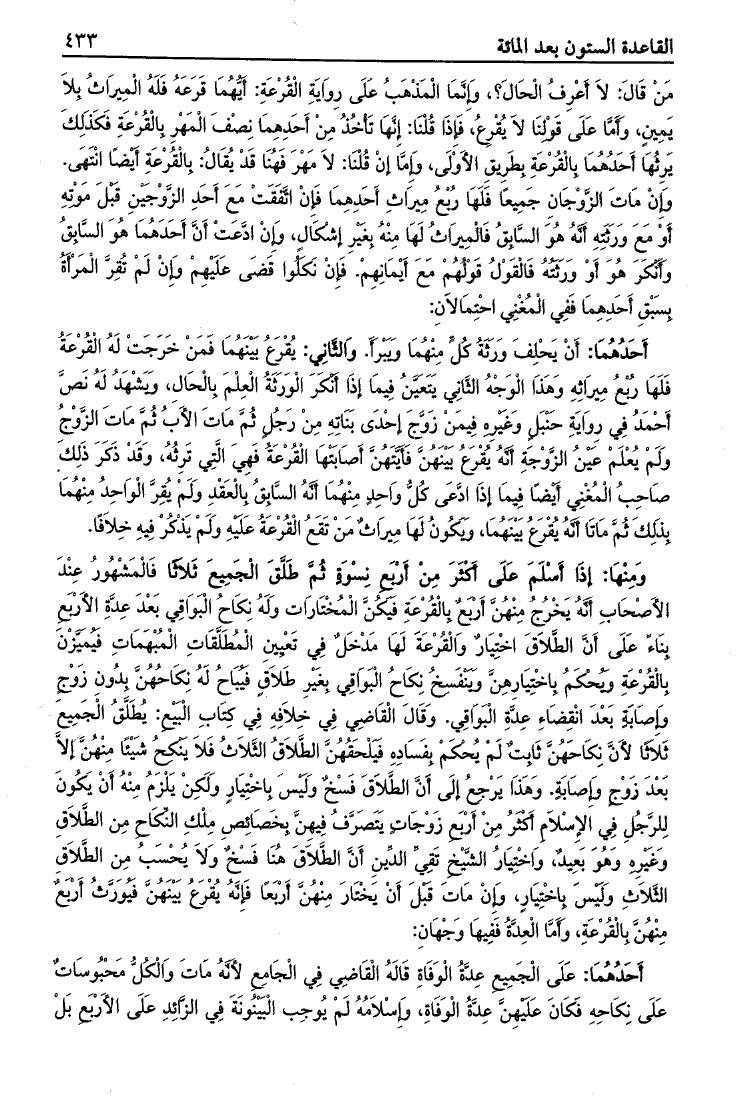 القاعدة الستون بعد المائة ٤٣٣
مَنْ قَالَ: لاَ أَعْرِفُ الْحَالَ؟، وَإِنَّمَا الْمَذْهَبُ عَلَى رِوَايَةِ الْقُرْعَةِ: أَيُّهُمَا قَرَعَهُ فَلَهُ الْمِيرَاثُ بِلاَ
يَمِينٍ، وَأَمَّا عَلَى قَوْلِنَا لاَ يُقْرِعُ، فَإِذَا قُلْنَا: إِنَّهَا تَأْخُذُ مِنْ أَحَدِهِمَا نِصْفَ الْمَهْرِ بِالْقُرْعَةِ فَكَذَلِكَ
يَرِثُهَا أَحَدُهُمَا بِالْقُرْعَةِ بِطَرِيقِ الأَوْلَى، وَإِمَّا إِنْ قُلْنَا: لاَ مَهْرَ فَهُنَا قَدْ يُقَالُ: بِالْقُرْعَةِ أَيْضًا انْتَهَى.
وَإِنْ مَاتَ الزَّوْجَانِ جَمِيعًا فَلَهَا رُبْعُ مِيرَاثِ أَحَدِهِمَا فَإِنْ اتَّفَقَتْ مَعَ أَحَدِ الزَّوْجَيْنِ قَبْلَ مَوْتِهِ
أَوْ مَعَ وَرَثَتِهِ أَنَّهُ هُوَ السَّابِقُ فَالْمِيرَاثُ لَهَا مِنْهُ بِغَيْرِ إِشْكَالٍ، وَإِنْ ادَّعَتْ أَنَّ أَحَدَهُمَا هُوَ السَّابِقُ
وَأَنْكَرَ هُوَ أَوْ وَرَثَتُهُ فَالْقَوْلُ قَوْلُهُمْ مَعَ أَيْمَانِهِمْ. فَإِنْ نَكَلُوا قَضَى عَلَيْهِمْ وَإِنْ لَمْ تُقِرَّ الْمَرْأَةُ
بِسَبْقِ أَحَدِهِمَا فَفِي الْمُغْنِي احْتِمَالاَنِ:
أَحَدُهُمَا: أَنْ يَحْلِفَ وَرَثَةُ كُلٍّ مِنْهُمَا وَيَبْرَأَ. وَالثَّانِي: يُقْرَعُ بَيْنَهُمَا فَمَنْ خَرَجَتْ لَهُ الْقُرْعَةُ
فَلَهَا رُبْعُ مِيرَاثِهِ وَهَذَا الْوَجْهُ الثَّانِي يَتَعَيَّنُ فِيمَا إِذَا أَنْكَرَ الْوَرَثَةُ الْعِلْمَ بِالْحَالِ، وَيَشْهَدُ لَهُ نَصُّ
أَحْمَدُ فِي رِوَايَةِ حَنْبَلٍ وَغَيْرِهِ فِيمَنْ زَوَّجَ إِحْدَى بَنَاتِهِ مِنْ رَجُلٍ ثُمَّ مَاتَ الأَبُ ثُمَّ مَاتَ الزَّوْجُ
وَلَمْ يُعْلَمْ عَيْنُ الزَّوْجَةِ أَنَّهُ يُقْرَعُ بَيْنَهُنَّ فَأَيَّتُهُنَّ أَصَابَتْهَا الْقُرْعَةُ فَهِيَ الَّتِي تَرِثُهُ، وَقَدْ ذَكَرَ ذَلِكَ
صَاحِبُ الْمُغْنِي أَيْضًا فِيمَا إِذَا ادَّعَى كُلُّ وَاحِدٍ مِنْهُمَا أَنَّهُ السَّابِقُ بِالْعَقْدِ وَلَمْ يُقِرَّ الْوَاحِدُ مِنْهُمَا
بِذَلِكَ ثُمَّ مَاتَا أَنَّهُ يُقْرَعُ بَيْنَهُمَا، وَيَكُونُ لَهَا مِيرَاثُ مَنْ تَقَعُ الْقُرْعَةُ عَلَيْهِ وَلَمْ يَذْكُرْ فِيهِ خِلاَفًا.
وَمِنْهَا: إِذَا أَسْلَمَ عَلَى أَكْثَرَ مِنْ أَرْبَعِ نِسْوَةٍ ثُمَّ طَلَّقَ الْجَمِيعَ ثَلاَثًا فَالْمَشْهُورُ عِنْدَ
الأَصْحَابِ أَنَّهُ يَخْرُجُ مِنْهُنَّ أَرْبَعٌ بِالْقُرْعَةِ فَيَكُنَّ الْمُخْتَارَاتِ وَلَهُ نِكَاحُ الْبَوَاقِي بَعْدَ عِدَّةِ الأَرْبَعِ
بِنَاءً عَلَى أَنَّ الطَّلاَقَ اخْتِيَارٌ وَالْقُرْعَةَ لَهَا مَدْخَلٌ فِي تَعْيِينِ الْمُطَلَّقَاتِ الْمُبْهَمَاتِ فَيُمَيَّزْنَ
بِالْقُرْعَةِ وَيُحْكَمُ بِاخْتِيَارِهِنَّ وَيَنْفَسِخُ نِكَاحُ الْبَوَاقِي بِغَيْرِ طَلاَقٍ فَيُبَاحُ لَهُ نِكَاحُهُنَّ بِدُونِ زَوْجٍ
وَإِصَابَةٍ بَعْدَ انْقِضَاءِ عِدَّةِ الْبَوَاقِي. وَقَالَ الْقَاضِي فِي خِلاَفِهِ فِي كِتَابِ الْبَيْعِ: يُطَلَّقُ الْجَمِيعُ
ثَلاَثًا لأَنَّ نِكَاحَهُنَّ ثَابِتٌ لَمْ يُحْكَمْ بِفَسَادِهِ فَيَلْحَقُهُنَّ الطَّلاَقُ الثَّلاَثُ فَلاَ يَنْكِحُ شَيْئًا مِنْهُنَّ إِلاَّ
بَعْدَ زَوْجٍ وَإِصَابَةٍ. وَهَذَا يَرْجِعُ إِلَى أَنَّ الطَّلاَقَ فَسْخٌ وَلَيْسَ بِاخْتِيَارٍ وَلَكِنْ يَلْزَمُ مِنْهُ أَنْ يَكُونَ
لِلرَّجُلِ فِي الإِسْلاَمِ أَكْثَرُ مِنْ أَرْبَعِ زَوْجَاتٍ يَتَصَرَّفُ فِيهِنَّ بِخَصَائِصِ مِلْكِ النِّكَاحِ مِنِ الطَّلاَقِ
وَغَيْرِهِ وَهُوَ بَعِيدٌ، وَاخْتِيَارُ الشَّيْخِ تَقِيِّ الدِّينِ أَنَّ الطَّلاَقَ هُنَا فَسْخٌ وَلاَ يُحْسَبُ مِنِ الطَّلاَقِ
الثَّلاَثِ وَلَيْسَ بِاخْتِيَارٍ، وَإِنْ مَاتَ قَبْلَ أَنْ يَخْتَارَ مِنْهُنَّ أَرْبَعًا فَإِنَّهُ يُقْرَعُ بَيْنَهُنَّ فَيُوَرَّثُ أَرْبَعٌ
مِنْهُنَّ بِالْقُرْعَةِ، وَأَمَّا الْعِدَّةُ فَفِيهَا وَجْهَانِ:
أَحَدُهُمَا: عَلَى الْجَمِيعِ عِدَّةُ الْوَفَاةِ قَالَهُ الْقَاضِي فِي الْجَامِعِ لأَنَّهُ مَاتَ وَالْكُلُّ مَحْبُوسَاتٌ
عَلَى نِكَاحِهِ فَكَانَ عَلَيْهِنَّ عِدَّةُ الْوَفَاةِ، وَإِسْلاَمُهُ لَمْ يُوجِبِ الْبَيْنُونَةَ فِي الزَّائِدِ عَلَى الأَرْبَعِ بَلْ